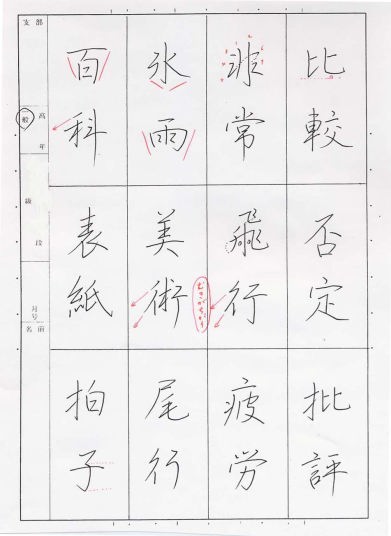 比較
非常
氷雨
百科
否定
飛行
美術
表紙
批評
疲労
尾行
拍子
むきがちがう
支部
高
般
年
級
段
月号
名前